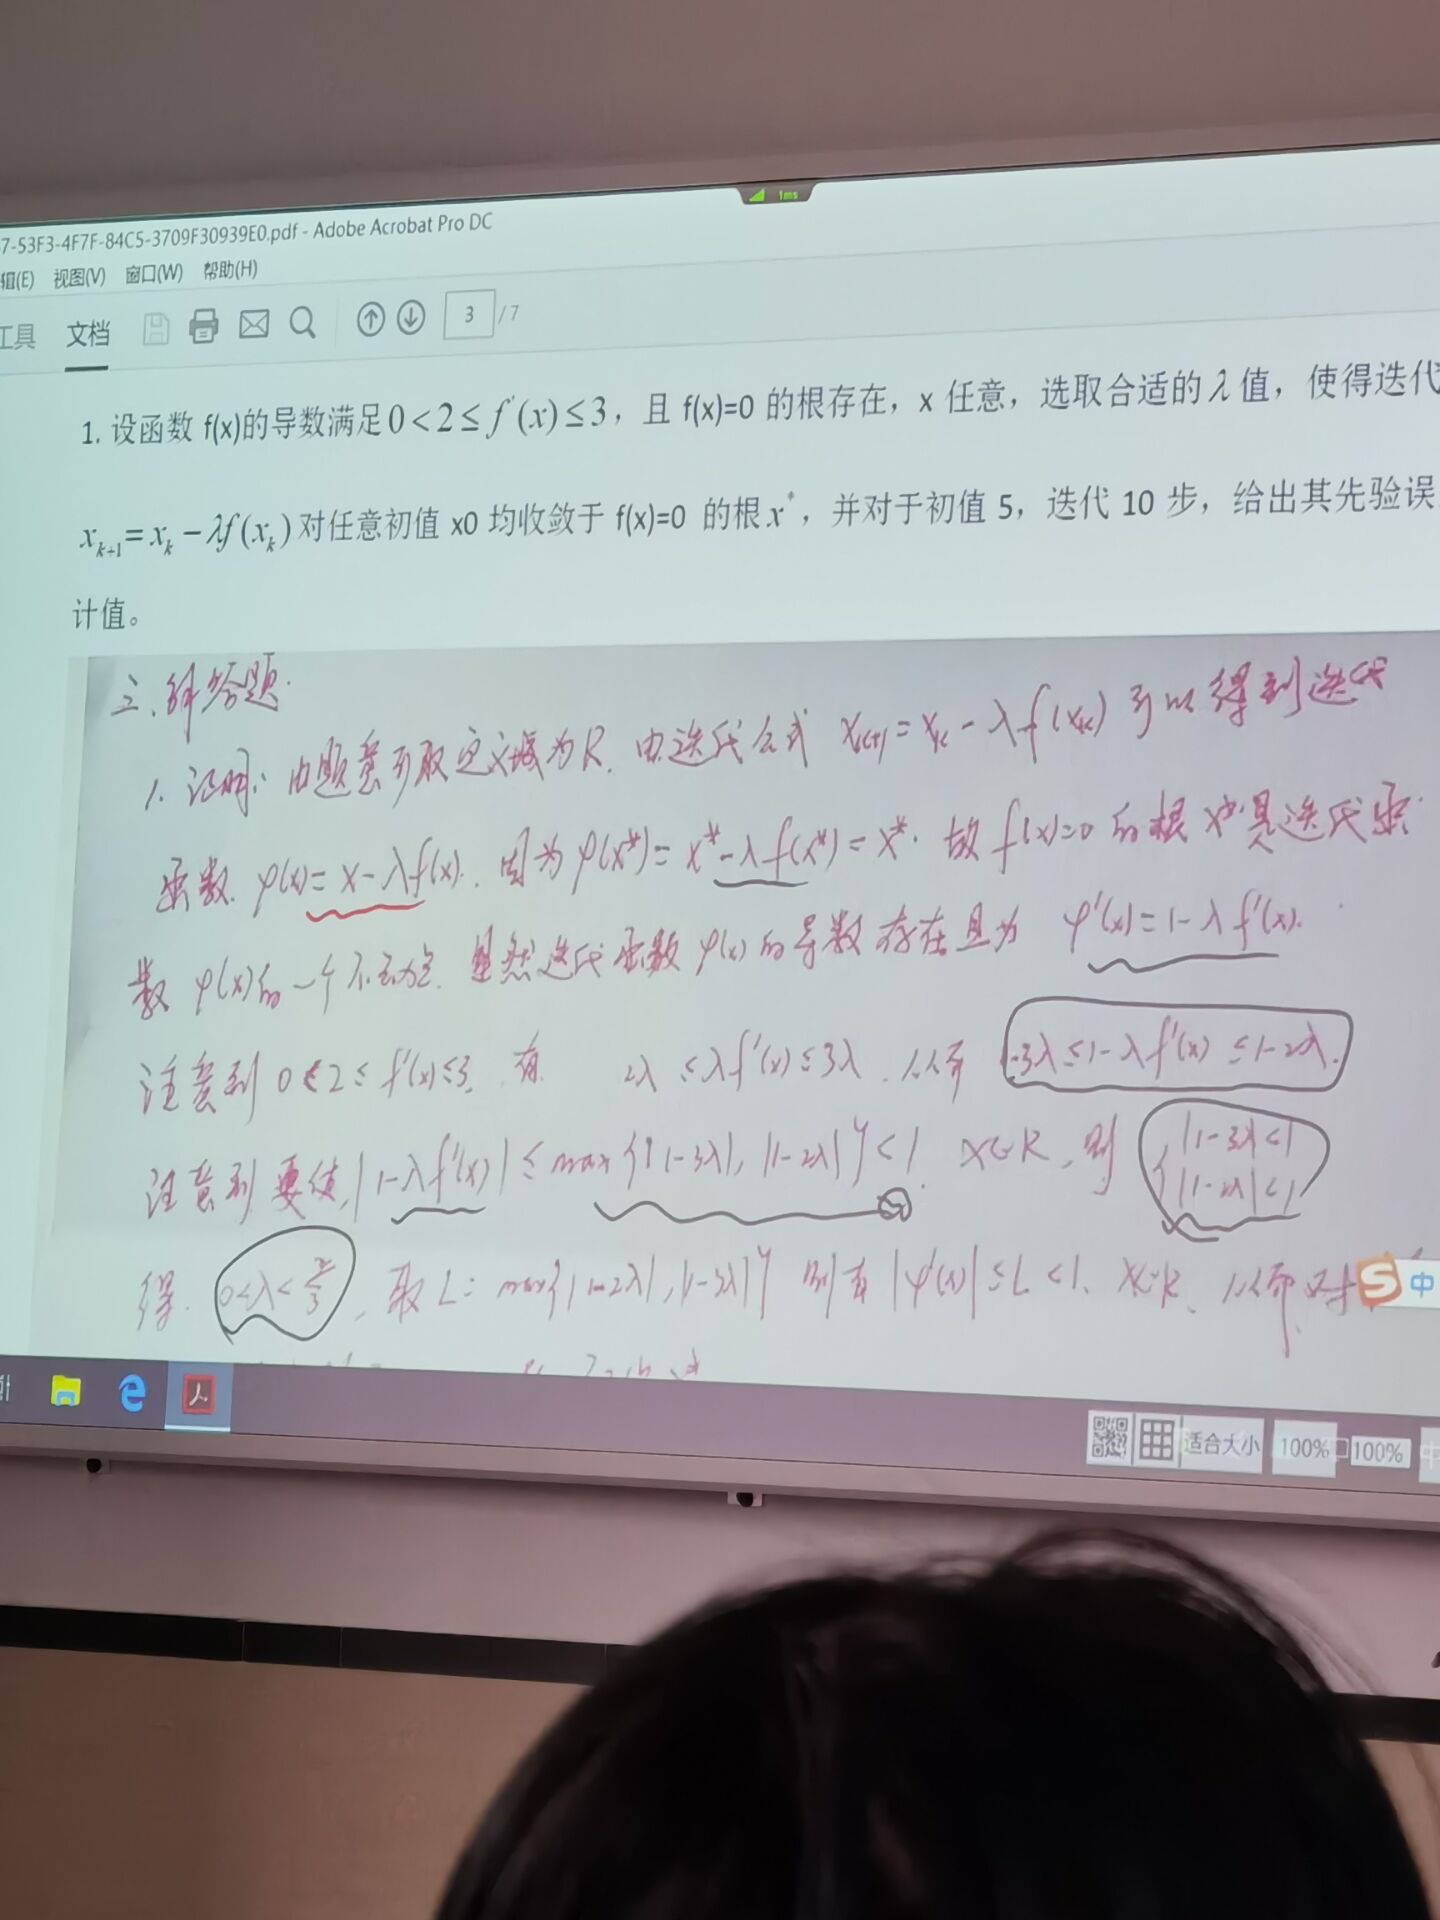 1ms
7-53F3-4F7F-84C5-3709F30939E0.pdf - Adobe Acrobat Pro DC
辑(E) 视图(V) 窗口(W) 帮助(H)
工具 文档 3 / 7
1. 设函数 f(x)的导数满足0<2≤f'(x)≤3，且 f(x)=0 的根存在，x 任意，选取合适的λ值，使得迭代
x_{k+1}=x_k-λf(x_k)对任意初值 x0 均收敛于 f(x)=0 的根x*，并对于初值 5，迭代 10 步，给出其先验误
计值。
三、解答题.
1. 证明: 由题意可取定义域为R. 由迭代公式 x_{k+1}=x_k-λf(x_k) 可以得到迭代
函数 φ(x)=x-λf(x). 因为 φ(x*)=x*-λf(x*)=x*. 故 f(x)=0 的根 x*是迭代函
数 φ(x)的一个不动点. 显然迭代函数 φ(x)的导数存在且为 φ'(x)=1-λf'(x).
注意到 0<2≤f'(x)≤3, 有 2λ≤λf'(x)≤3λ, 从而 1-3λ≤1-λf'(x)≤1-2λ.
注意到要使|1-λf'(x)|≤max{|1-3λ|, |1-2λ|}<1 x∈R, 则 {|1-3λ|<1
|1-2λ|<1
得. 0<λ<2/3, 取 L=max{|1-2λ|, |1-3λ|} 则有 |φ'(x)|≤L<1, x∈R, 从而对
中
适合大小 100% 100% 中